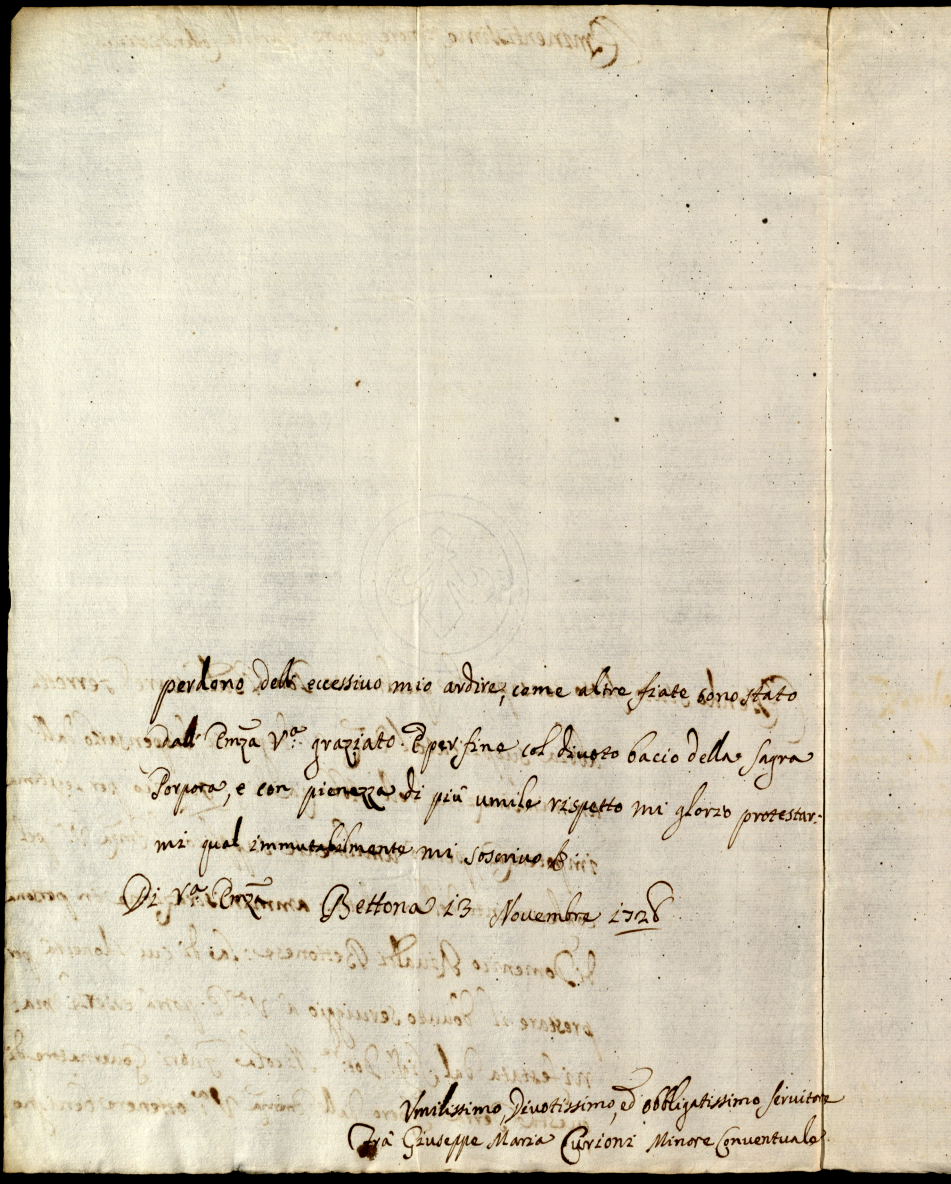 perdono dell'eccessivo mio ardire, come altre fiate sono stato
dall' Emza Vra graziato. E per fine col divoto bacio della Sagra
Porpora, e con pienezza di più umile rispetto mi glorio protestar-
mi qual immutabilmente mi soscrivo
Di Vra Emza Bettona 13 Novembre 1726
Umilissimo, Divotissimo, ed obbligatissimo servitore
Frà Giuseppe Maria Curioni Minore Conventuale